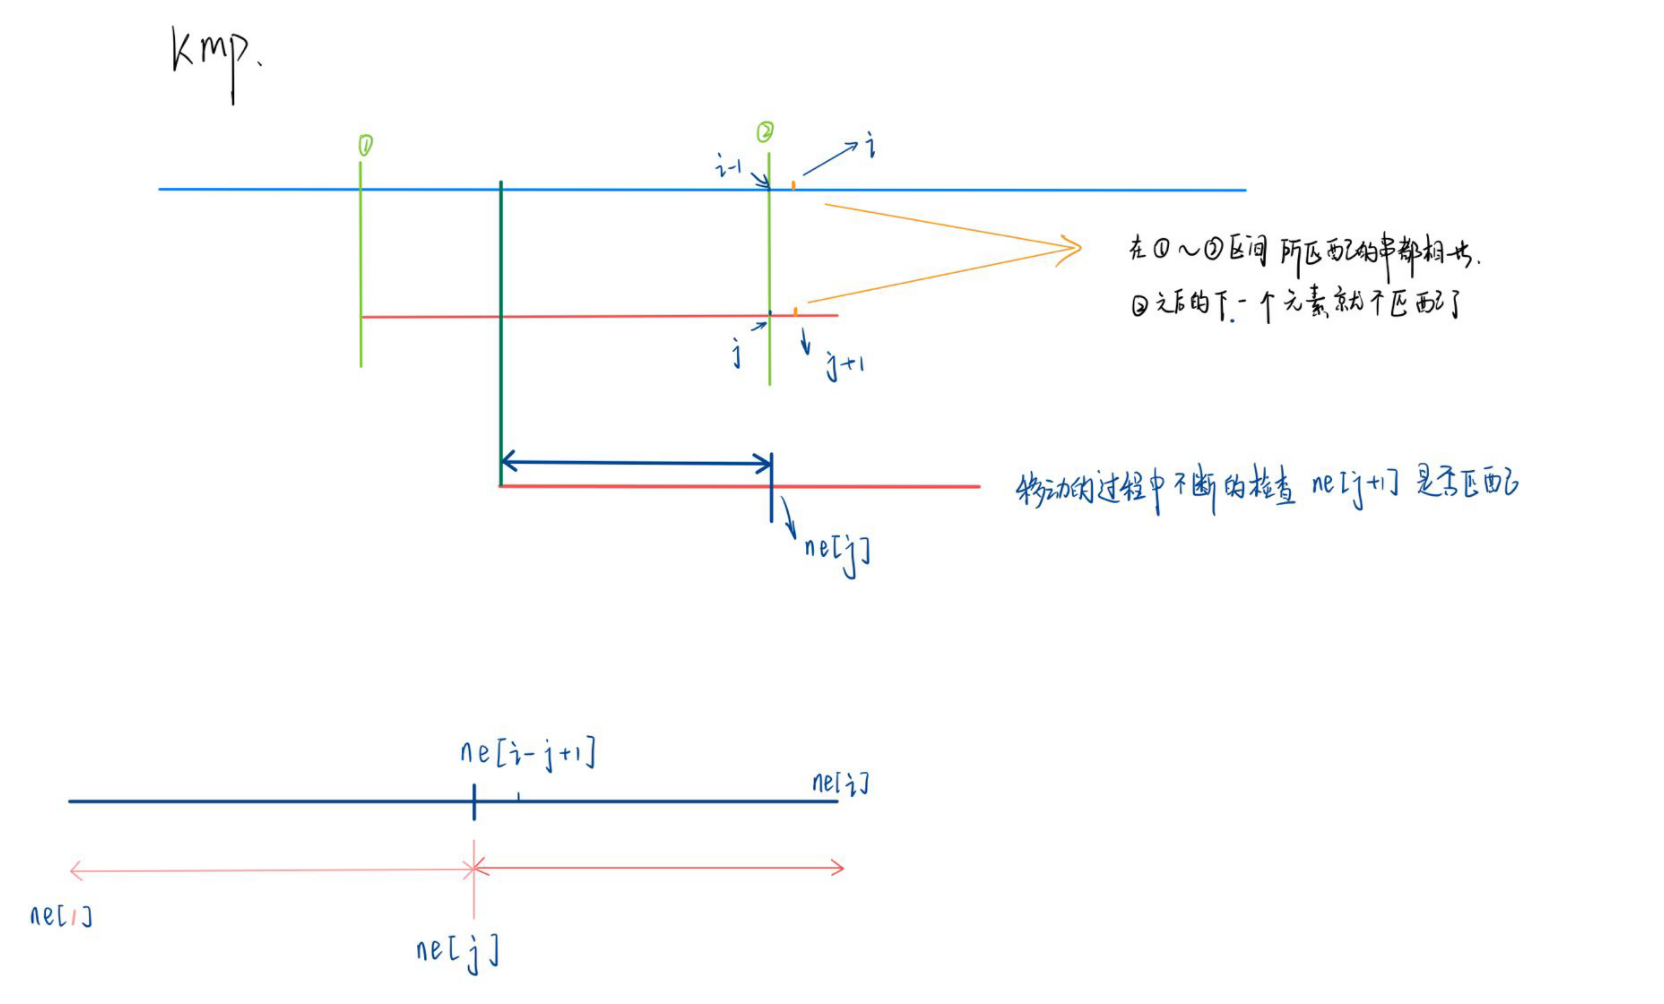 kmp.
①
②
i-1
i
在①~②区间 所匹配的串都相等.
②之后的下一个元素就不匹配了
j
j+1
移动的过程中不断的检查 ne[j+1] 是否匹配
ne[j]
ne[i-j+1]
ne[i]
ne[1]
ne[j]